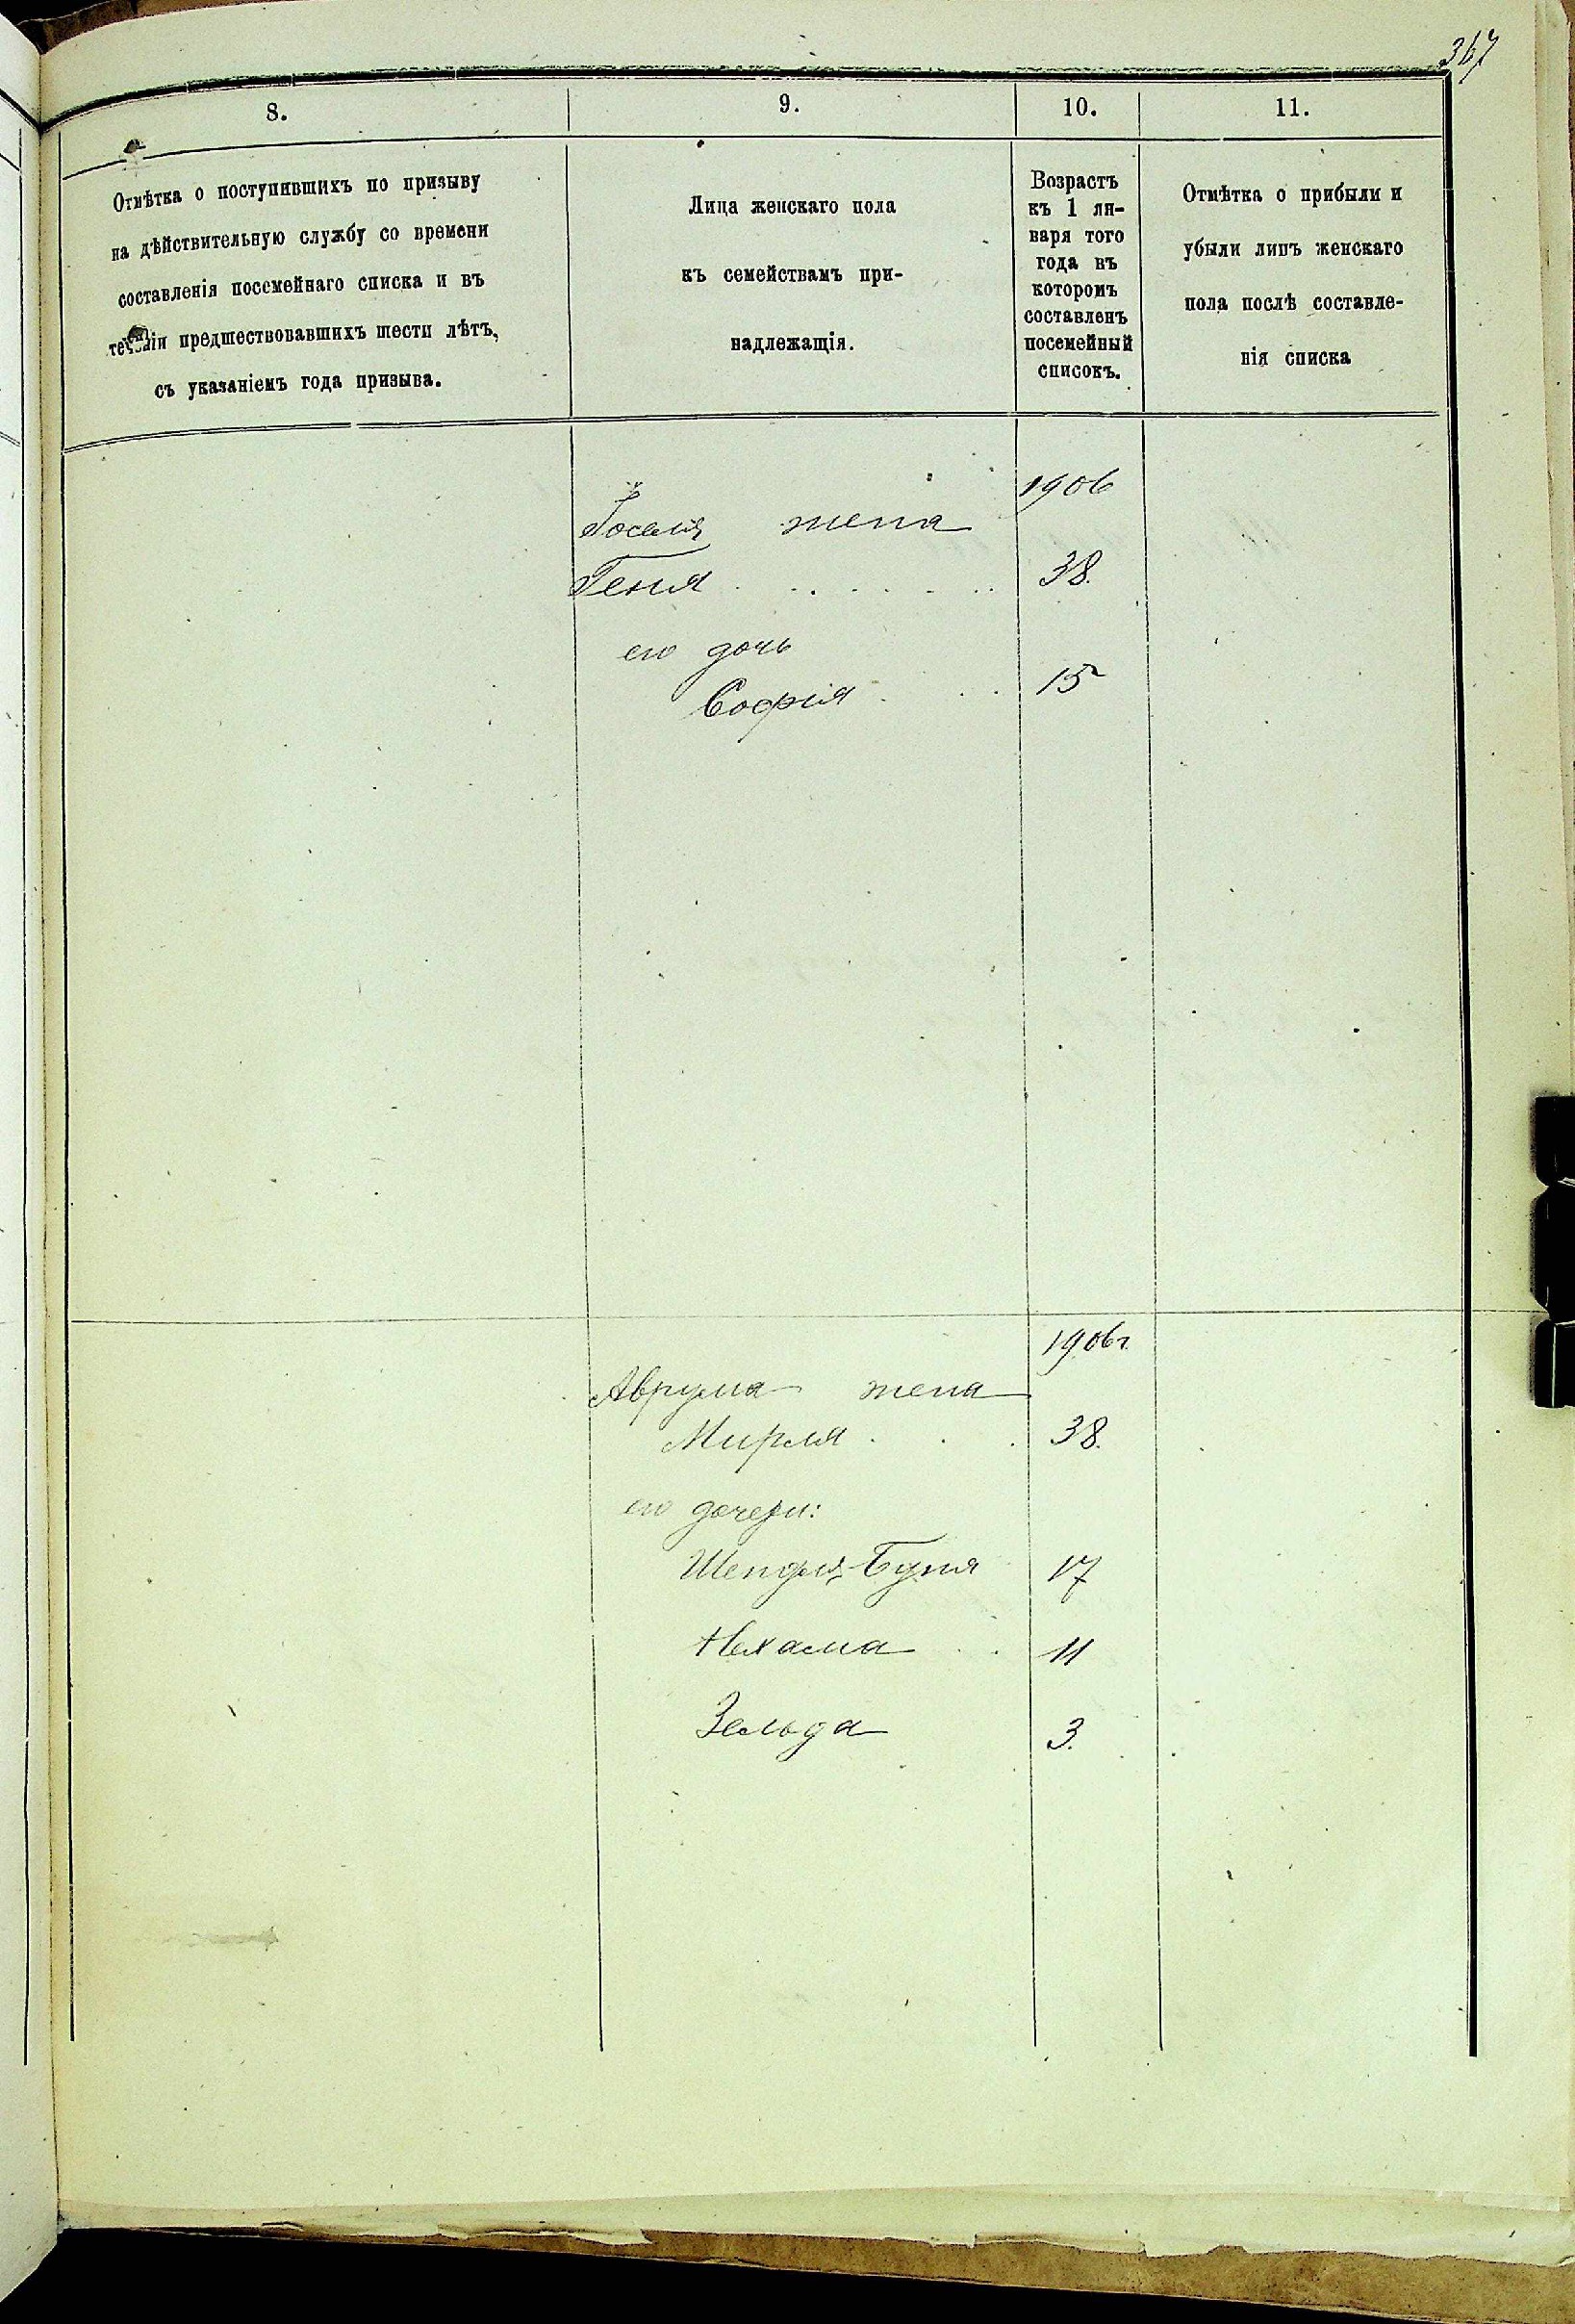 367
8.
9.
10.
11.
Отмѣтка о поступившихъ по призыву
на дѣйствительную службу со времени
составленія посемейнаго списка и въ
теченіи предшествовавшихъ шести лѣтъ,
съ указаніемъ года призыва.
Лица женскаго пола
къ семействамъ при-
надлежащія.
Возрастъ
къ 1 ян-
варя того
года въ
которомъ
составленъ
посемейный
списокъ.
Отмѣтка о прибыли и
убыли лицъ женскаго
пола послѣ составле-
нія списка
1906
Іоселя жена
Геня 38.
его дочь
Софія 15
1906 г.
Аврума жена
Мирля 38.
его дочери:
Шендля-Буня 17
Нехама 11
Зельда 3.